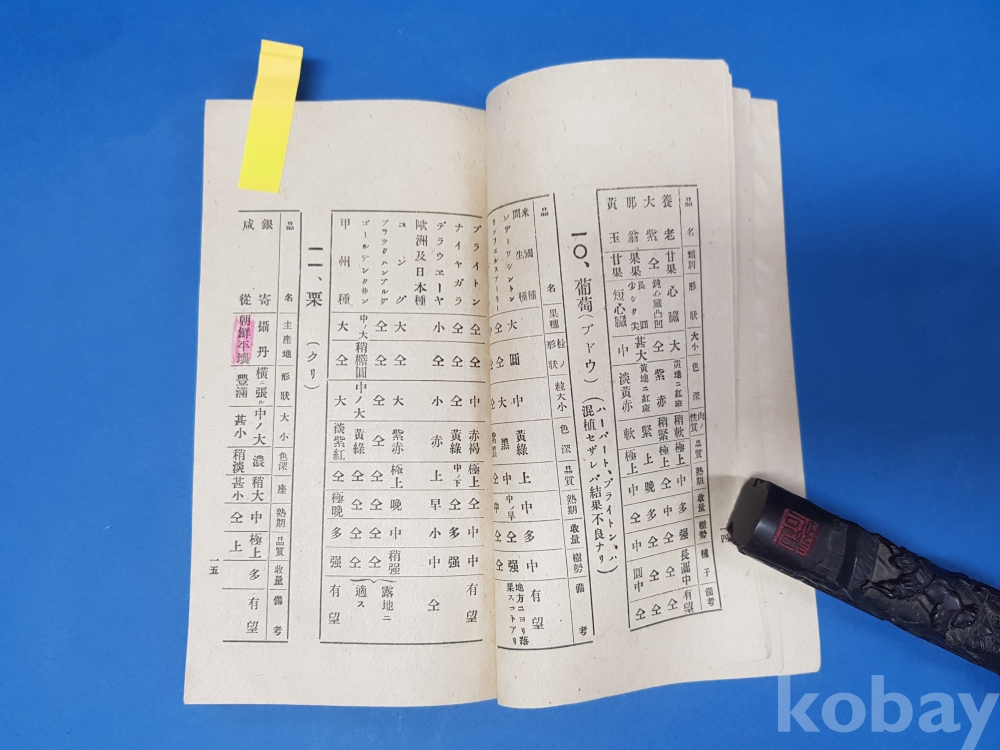 品名 類別 形狀 大小 色深 肉ノ性質 品質 熟期 收量 樹勢 種子 備考
養老 甘果 心臟 大 黃地ニ紅斑 稍軟 極上 中 多 强 長圓中 有望
大紫 仝 鈍心臟凸凹 仝 紫赤 稍緊 極上 中
那翁 果果 長圓少シク尖 甚大 黃地ニ紅斑 緊 上 晚 多 仝 仝 仝
黃玉 甘果 短心臟 中 淡黃赤 軟 極上 中 仝 中 圓中 仝
四
一〇、葡萄(ブドウ)(ハーバート、ブライトン、ハ
混植セザレバ結果不良ナリ)
品名 果穗形狀 粒ノ粒大小 色深 品質 熟期 收量 樹勢 備考
米國種
間生種
レデーワシントン 大 圓 中 黃綠 上 中ノ早 多 中 有望
地方ニヨリ落果スコトアリ
ブライトン 仝 仝 中 赤褐 極上 仝 中 中 有望
ナイヤガラ 仝 仝 仝 黃綠 中ノ下 仝 多 强
デラウエーヤ 小 仝 小 赤 上 早 小 中 仝
歐洲及日本種
ユング 大 仝 大 紫赤 極上 晚 中 稍强 露地ニ適ス
ブラックハンブルグ 仝 仝 仝 仝 仝 仝 仝 仝
ゴールデンクヰン 中ノ大 稍橢圓 中ノ大 黃綠 仝 仝 仝 仝
甲州種 大 仝 大 淡紫紅 仝 極晚 多 强 有望
一一、栗(クリ)
品名 主產地 形狀 大小 色深 座 熟期 品質 收量 備考
銀寄 攝丹 橫ニ張ル 中ノ大 濃 稍大 中 極上 多 有望
咸從 朝鮮平壤 豐滿 甚小 稍淡 甚小 仝 上
一五
kobay